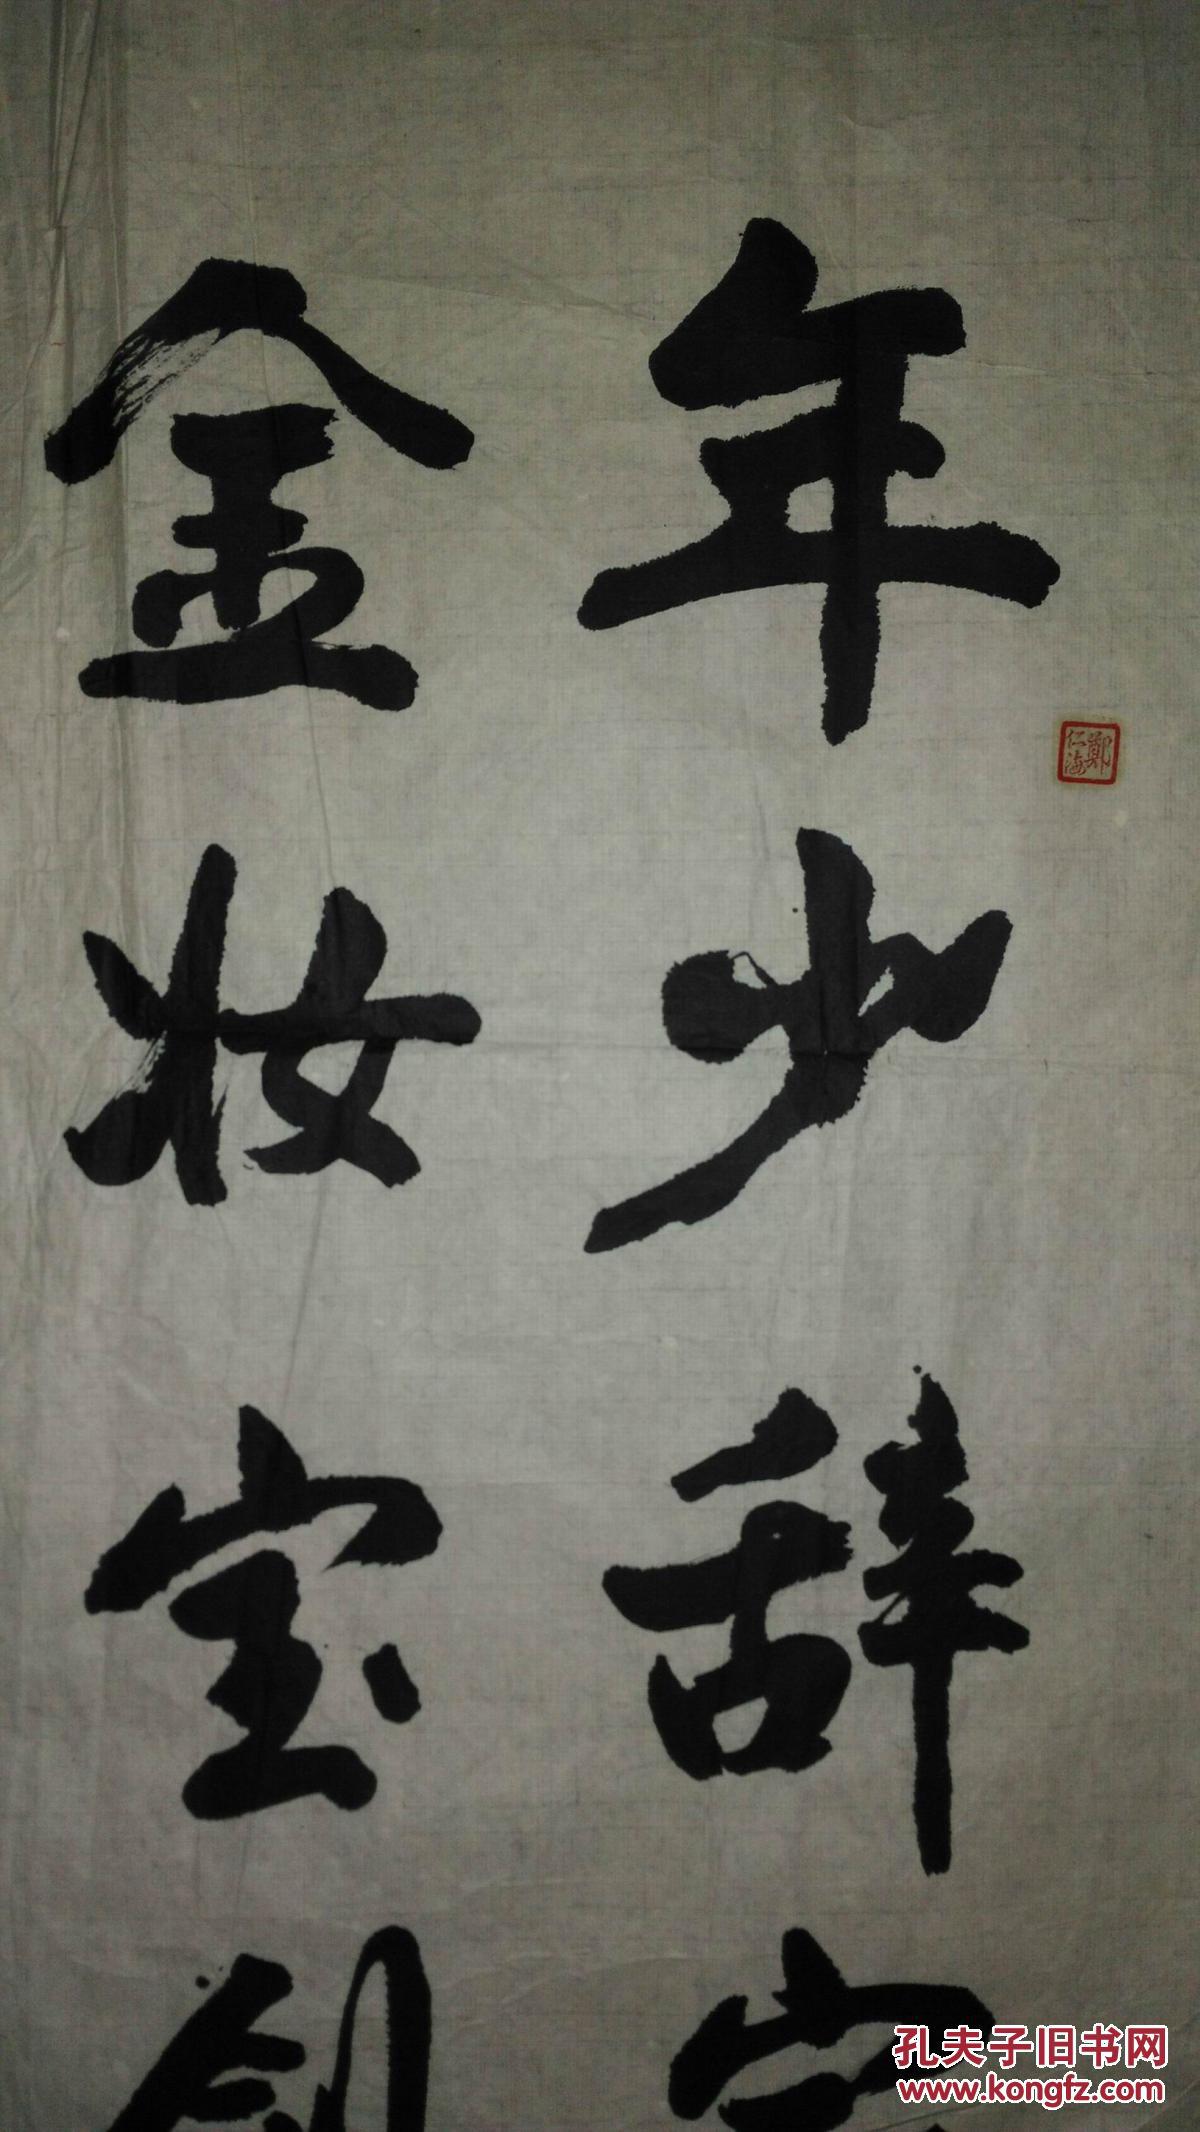 年少辞家
金妆宝剑
鄭仁海
孔夫子旧书网
www.kongfz.com